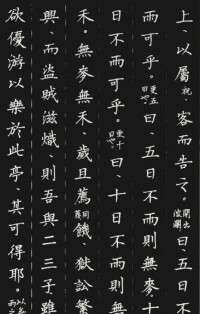 上、以屬祝、客而告之。開出波瀾曰五日不
雨可乎。更五日也。曰、五日不雨則無麥。十
日不雨可乎。更十日也。曰、十日不雨則無
禾。無麥無禾、歲且薦同荐饑、獄訟繁
興、而盜賊滋熾、則吾與二三子雖
欲優游以樂於此亭、其可得耶。